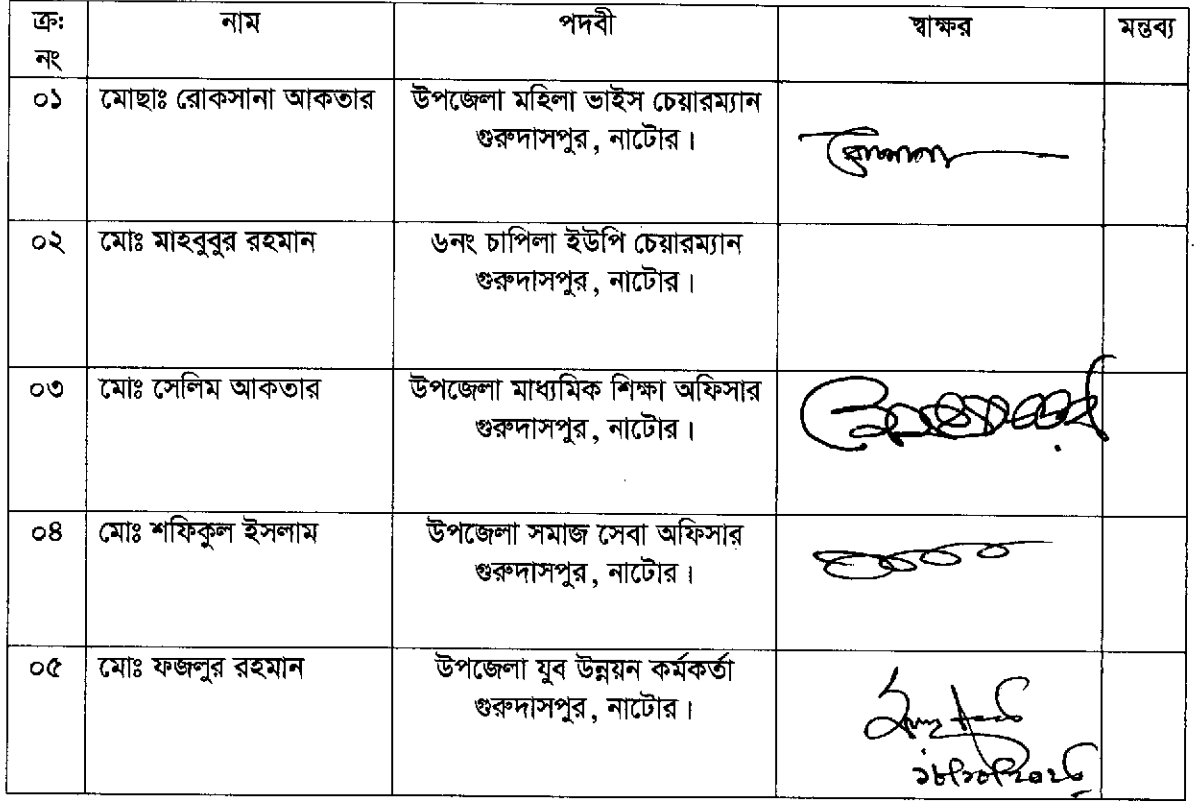 ক্রঃ নং নাম পদবী স্বাক্ষর মন্তব্য
০১ মোছাঃ রোকসানা আকতার উপজেলা মহিলা ভাইস চেয়ারম্যান
গুরুদাসপুর, নাটোর।
০২ মোঃ মাহবুবুর রহমান ৬নং চাপিলা ইউপি চেয়ারম্যান
গুরুদাসপুর, নাটোর।
০৩ মোঃ সেলিম আকতার উপজেলা মাধ্যমিক শিক্ষা অফিসার
গুরুদাসপুর, নাটোর।
০৪ মোঃ শফিকুল ইসলাম উপজেলা সমাজ সেবা অফিসার
গুরুদাসপুর, নাটোর।
০৫ মোঃ ফজলুর রহমান উপজেলা যুব উন্নয়ন কর্মকর্তা
গুরুদাসপুর, নাটোর।